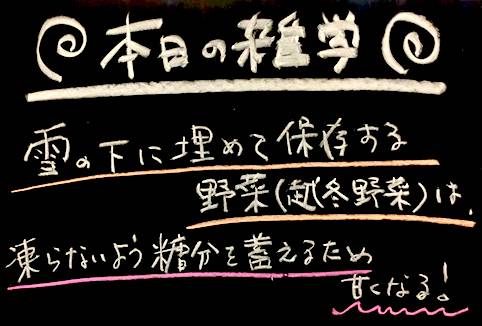 本日の雑学
雪の下に埋めて保存する
野菜(越冬野菜)は、
凍らないよう糖分を蓄えるため
甘くなる!